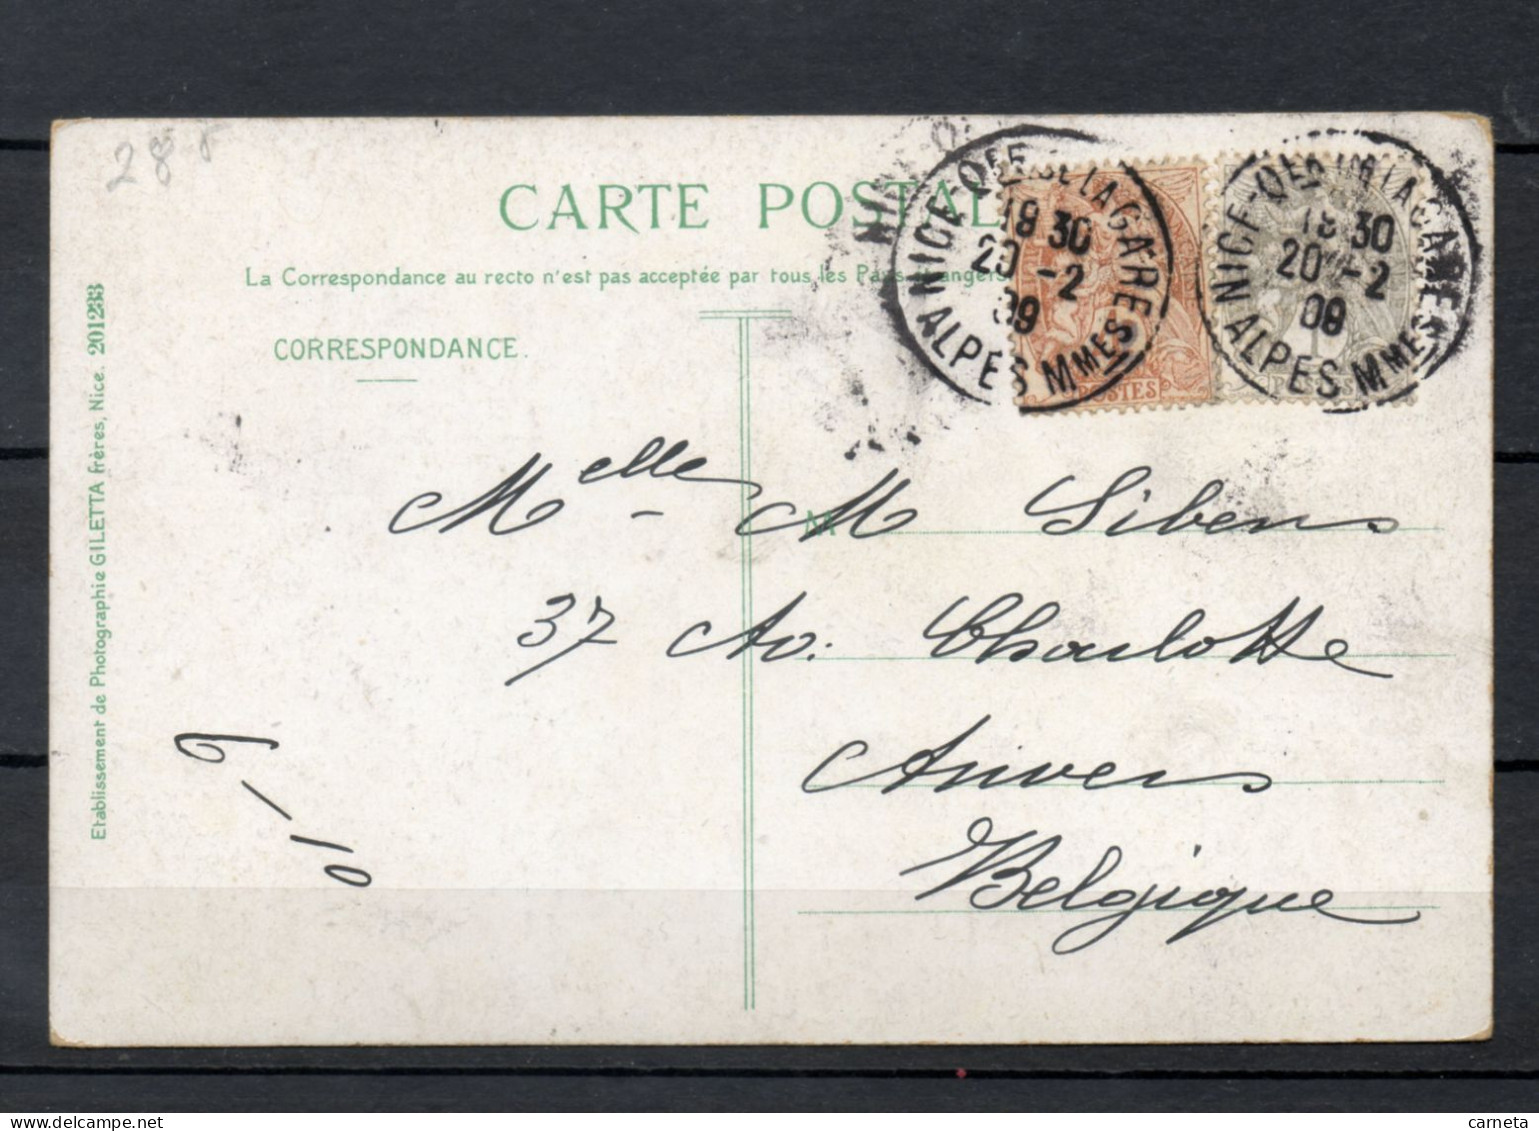 288
CARTE POSTALE
La Correspondance au recto n'est pas acceptée par tous les Pays Etrangers
CORRESPONDANCE.
NICE-Qier DE LA GARE
18 30
20 -2
09
ALPES Mmes
NICE-Qier DE LA GARE
18 30
20 -2
09
ALPES Mmes
POSTES
POSTES
Melle - M Sibens
M
37 Av: Charlotte
Anvers
Belgique
6/10
Etablissement de Photographie GILETTA frères, Nice. 201233
carneta